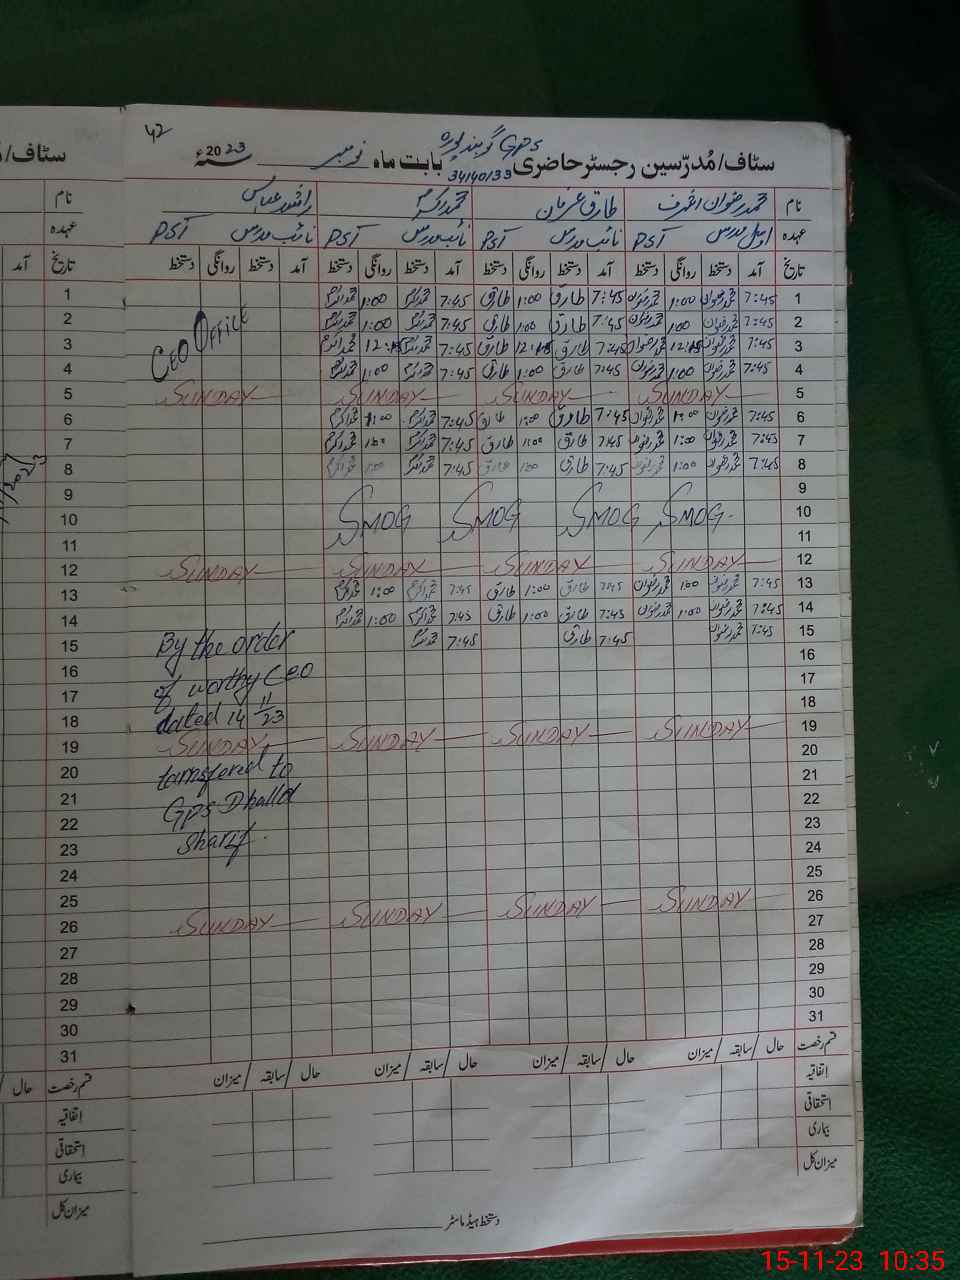 42
GPS گوبند پورہ
سٹاف/مُدرّسین رجسٹر حاضری بابت ماہ نومبر سنہ 2023ء
34140133
نام محمد رضوان اشرف طارق عرفان محمد اکرم راشد عباس
عہدہ اول مدرس PST نائب مدرس PST نائب مدرس PST نائب مدرس PST
تاریخ آمد دستخط روانگی دستخط آمد دستخط روانگی دستخط آمد دستخط روانگی دستخط آمد دستخط روانگی دستخط
1 7:45 محمد رضوان 1:00 محمد رضوان 7:45 طارق 1:00 طارق 7:45 محمد اکرم 1:00 محمد اکرم
2 7:45 محمد رضوان 1:00 محمد رضوان 7:45 طارق 1:00 طارق 7:45 محمد اکرم 1:00 محمد اکرم
3 7:45 محمد رضوان 12:15 محمد رضوان 7:45 طارق 12:15 طارق 7:45 محمد اکرم 12:15 محمد اکرم
4 7:45 محمد رضوان 1:00 محمد رضوان 7:45 طارق 1:00 طارق 7:45 محمد اکرم 1:00 محمد اکرم
CEO OFFICE
5 SUNDAY SUNDAY SUNDAY SUNDAY
6 7:45 محمد رضوان 1:00 محمد رضوان 7:45 طارق 1:00 طارق 7:45 محمد اکرم 1:00 محمد اکرم
7 7:45 محمد رضوان 1:00 محمد رضوان 7:45 طارق 1:00 طارق 7:45 محمد اکرم 1:00 محمد اکرم
8 7:45 محمد رضوان 1:00 محمد رضوان 7:45 طارق 1:00 طارق 7:45 محمد اکرم 1:00 محمد اکرم
9
10 SMOG SMOG SMOG SMOG
11
12 SUNDAY SUNDAY SUNDAY SUNDAY
13 7:45 محمد رضوان 1:00 محمد رضوان 7:45 طارق 1:00 طارق 7:45 محمد اکرم 1:00 محمد اکرم
14 7:45 محمد رضوان 1:00 محمد رضوان 7:45 طارق 1:00 طارق 7:45 محمد اکرم 1:00 محمد اکرم
15 7:45 محمد رضوان 7:45 طارق 7:45 محمد اکرم
By the order
of worthy CEO
dated 14 11/23
16
17
18
19 SUNDAY SUNDAY SUNDAY SUNDAY
transfered to
GPS Dhalla
Sharif.
20
21
22
23
24
25
26 SUNDAY SUNDAY SUNDAY SUNDAY
27
28
29
30
31
قسم رخصت حال / سابقہ / میزان حال / سابقہ / میزان حال / سابقہ / میزان حال / سابقہ / میزان
اتفاقیہ
استحقاقی
بیماری
میزان کل
دستخط ہیڈ ماسٹر
سٹاف/
نام
عہدہ
تاریخ آمد
1
2
3
4
5
6
7
8
9
10
11
12
13
14
15
16
17
18
19
20
21
22
23
24
25
26
27
28
29
30
31
قسم رخصت حال
اتفاقیہ
استحقاقی
بیماری
میزان کل
15-11-23 10:35